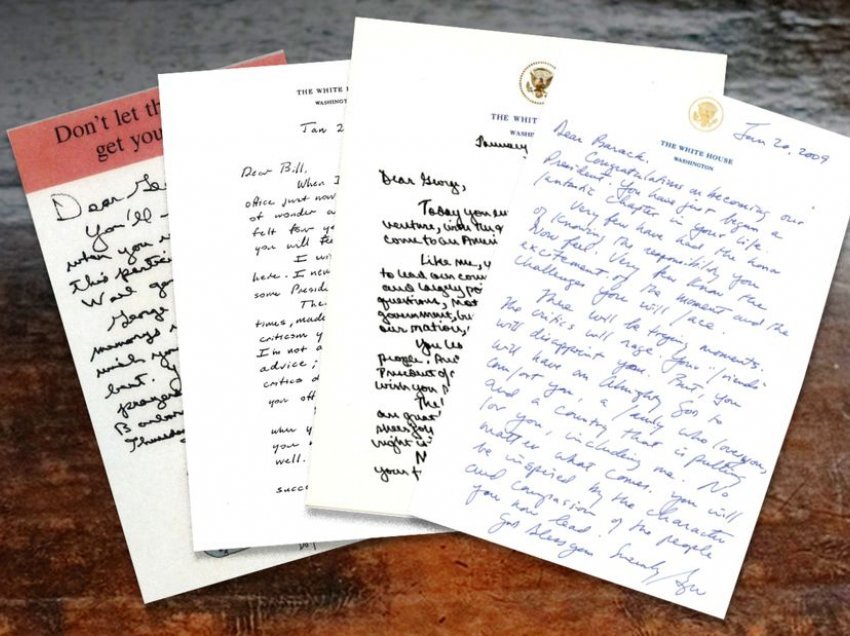 Don't let th
get you
Dear Geo
You'll
when you
This partic
George
memorys
wish you
prayers
Thursday
THE WHITE HOUSE
WASHINGTON
Jan 2
Dear Bill,
When I
office just now
of wonder a
felt four ye
you will fee
I wi
here. I neve
some Preside
The
times, made
criticism y
I'm not a
advice;
critics d
you off
you
when y
well.
succe
THE WHIT
WASHI
January
Dear George,
Today you em
venture, with the g
come to an Ameri
Like me, y
to lead our cou
and largely po
questions, that
government, bu
our nation,
You le
people. And
President of
wish you
The
are great
sheer joy
right is
your f
THE WHITE HOUSE
WASHINGTON
Jan 20, 2009
Dear Barack,
Congratulations on becoming our
President. You have just begun a
fantastic chapter in your life.
Very few have had the honor
of knowing the responsibility you
now feel. Very few know the
excitement of the moment and the
challenges you will face.
There will be trying moments.
The critics will rage. Your "friends"
will disappoint you. But, you
will have an Almighty God to
comfort you, a family who loves you,
and a country that is pulling
for you, including me. No
matter what comes, you will
be inspired by the character
and compassion of the people
you now lead.
God bless you.
Sincerely,